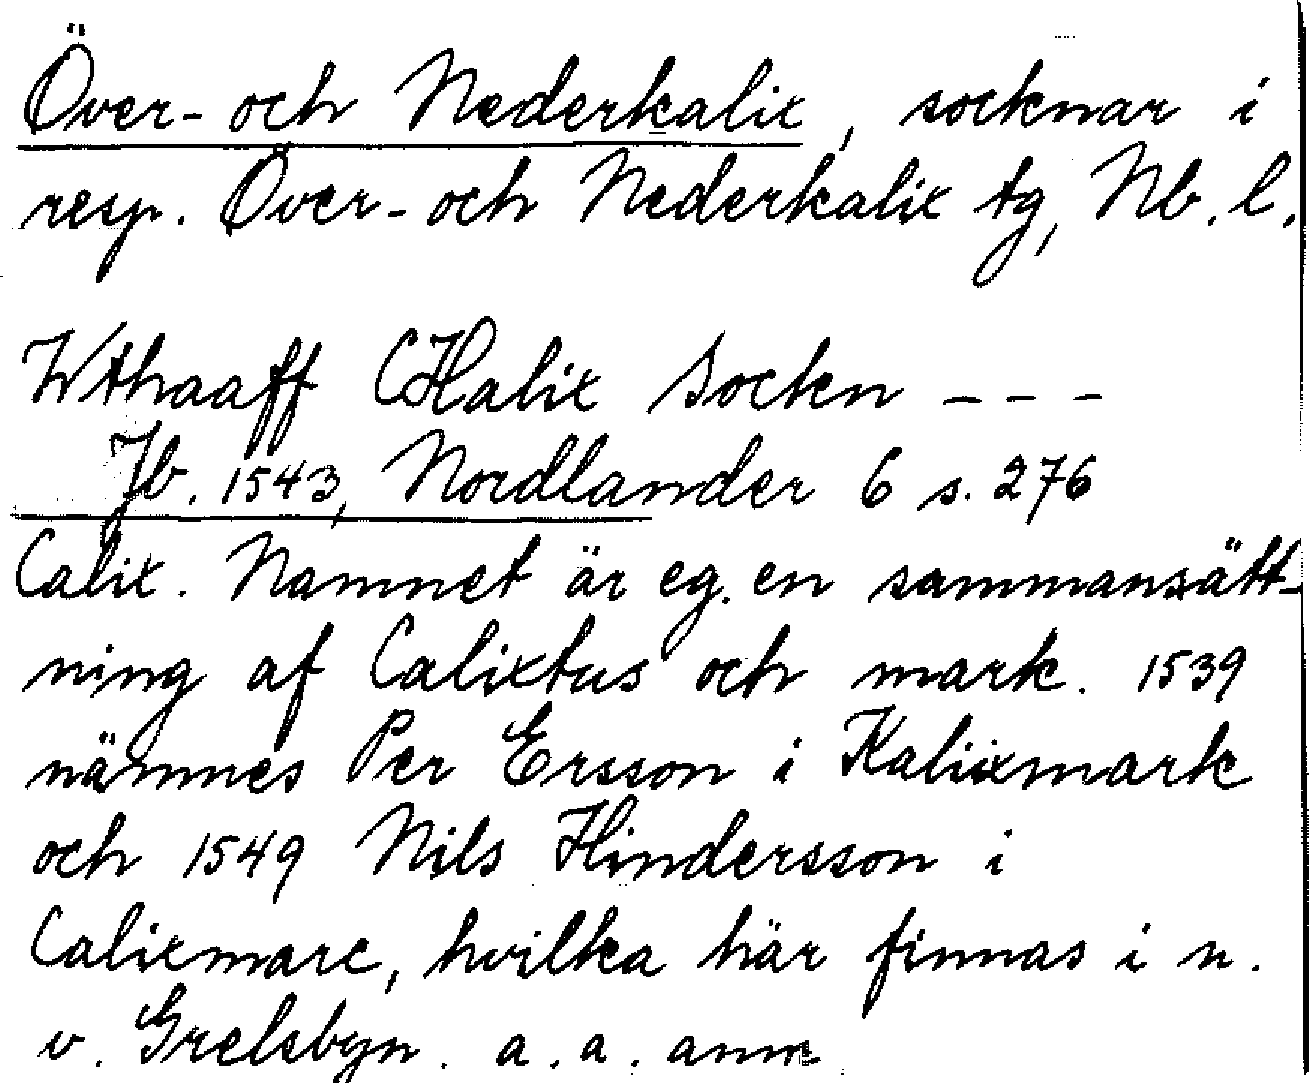 Över- och Nederkalix, socknar i
resp. Över- och Nederkalix tg, Nb. l.
Wthaaff CHalix Socken - - -
Jb. 1543, Nordlander 6 s. 276
Calix. Namnet är eg. en sammansätt-
ning af Calixtus och mark. 1539
nämnes Per Ersson i Kaliixmark
och 1549 Nils Hindersson i
Calixmarc, hvilka här finnas i n.
v. Grelsbyn. a. a. anm